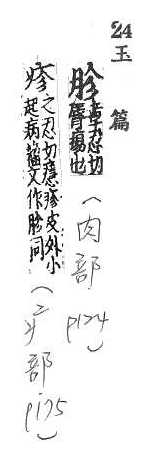 24 玉篇
胗 章忍切脣瘍也 (肉部 p174)
疹 之忍切癮疹皮外小起病籀文作胗同 (疒部 p175)